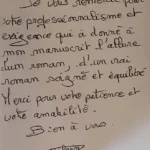 Je vous remercie pour
votre professionnalisme et
exigence qui a donné à
mon manuscrit l'allure
d'un roman, d'un vrai
roman soigné et équilibré
Merci pour votre patience et
votre amabilité.
Bien à vous.